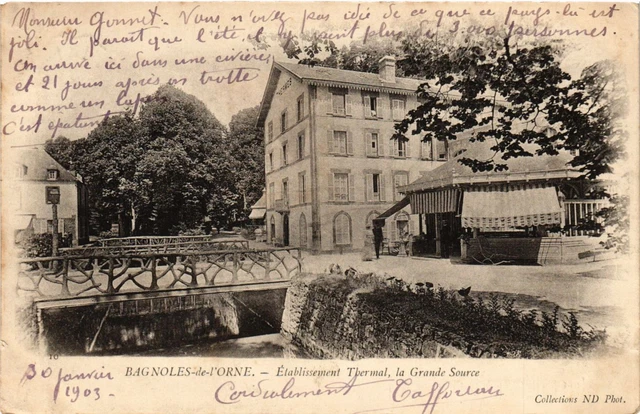 Monsieur Gonnet. Vous n'avez pas idée de ce que ce pays-là est
joli. Il parait que l'été il y vient plus de 3.000 personnes.
On arrive ici dans une civière
et 21 jours après on trotte
comme un lapin
C'est épatant
10
BAGNOLES-de-l'ORNE. — Établissement Thermal, la Grande Source
30 Janvier
1903.
Cordialement
Collections ND Phot.